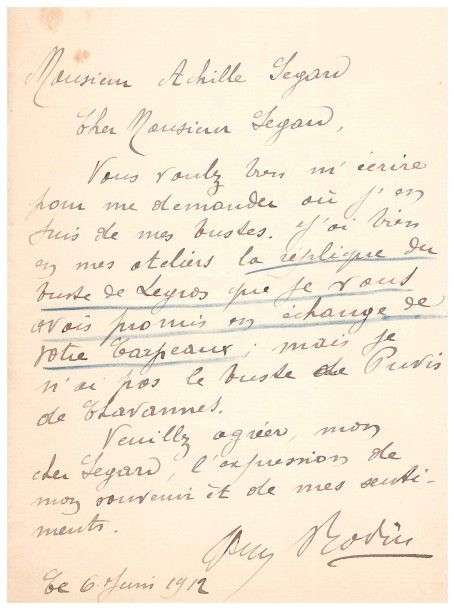 Monsieur Achille Segard
Cher Monsieur Segard,
Vous voulez bien m'écrire
pour me demander où j'en
suis de mes bustes. J'ai bien
en mes ateliers la réplique du
buste de Legros que je vous
avais promis en échange de
votre Carpeaux; mais je
n'ai pas le buste de Puvis
de Chavannes.
Veuillez agréer, mon
cher Segard, l'expression de
mon souvenir et de mes senti-
ments.
Aug Rodin
Le 6 Juin 1912